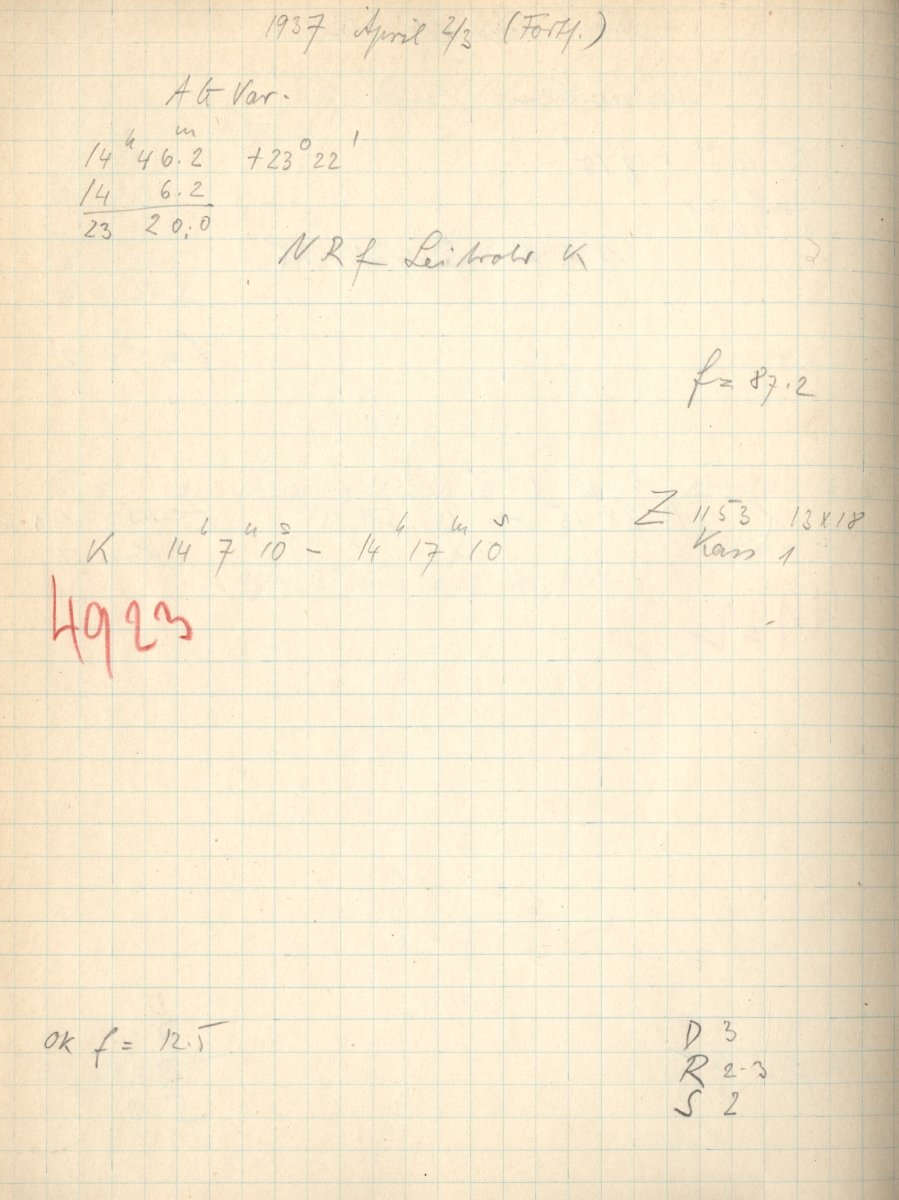 1937 April 2/3 (Forts.)
AG Var.
14ʰ 46.2ᵐ +23° 22'
14 6.2
23 20.0
NRf Leitrohr K
f = 87.2
Z 1153 13x18
K 14ʰ 7ᵐ 10ˢ - 14ʰ 17ᵐ 10ˢ
Kass 1
4923
OK f = 12.5
D 3
R 2-3
S 2